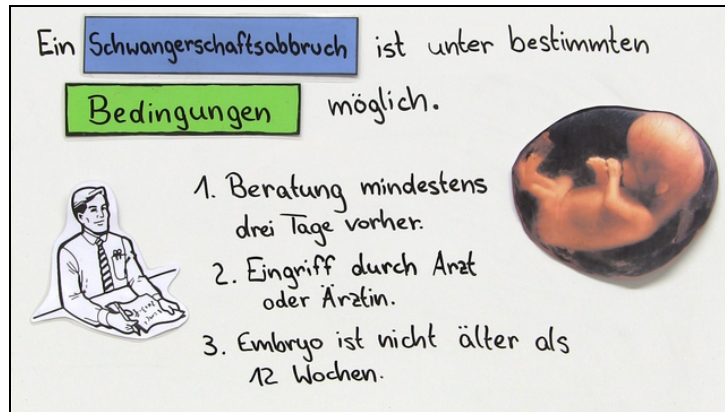 Ein Schwangerschaftsabbruch ist unter bestimmten
Bedingungen möglich.
1. Beratung mindestens
drei Tage vorher.
2. Eingriff durch Arzt
oder Ärztin.
3. Embryo ist nicht älter als
12 Wochen.